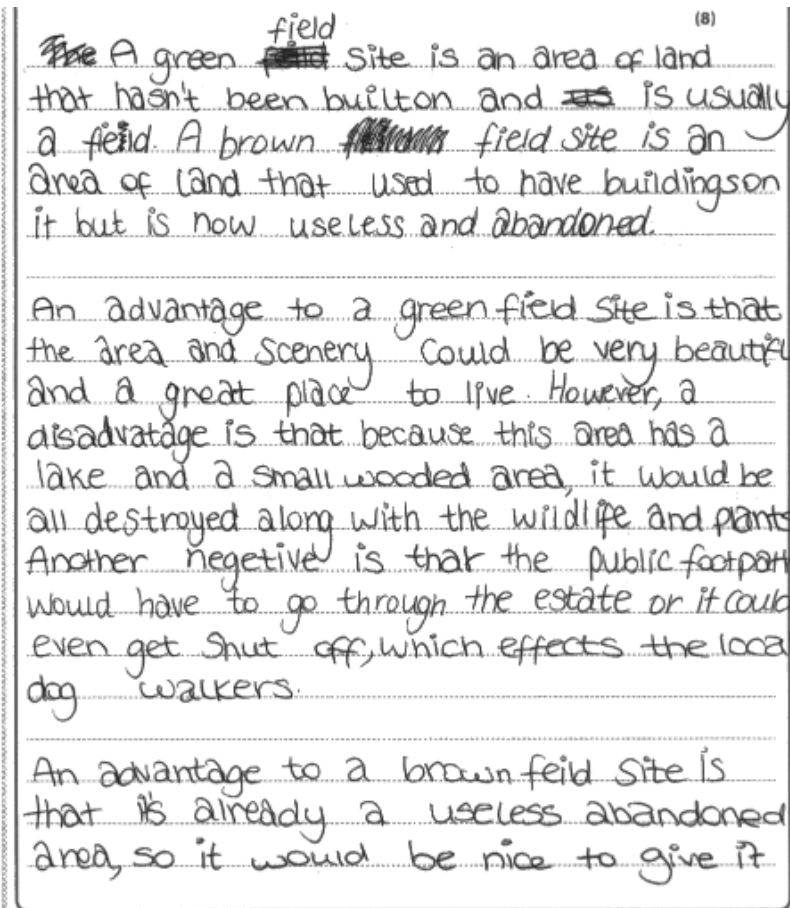 (8)
field
The A green site is an area of land
that hasn't been builton and is usually
a feild. A brown field site is an
area of land that used to have buildingson
it but is now useless and abandoned.
An advantage to a green field site is that
the area and scenery could be very beautifu
and a great place to live. However, a
disadvatage is that because this area has a
lake and a small wooded area, it would be
all destroyed along with the wildlife and plants
Another negetive is that the public footpath
would have to go through the estate or it could
even get shut off, which effects the local
dog walkers.
An advantage to a brown feild site is
that it's already a useless abandoned
area, so it would be nice to give it